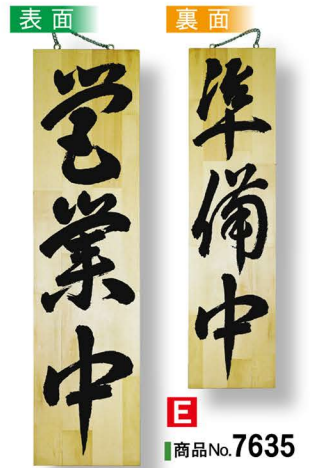 表面
営業中
裏面
準備中
E
商品No.7635